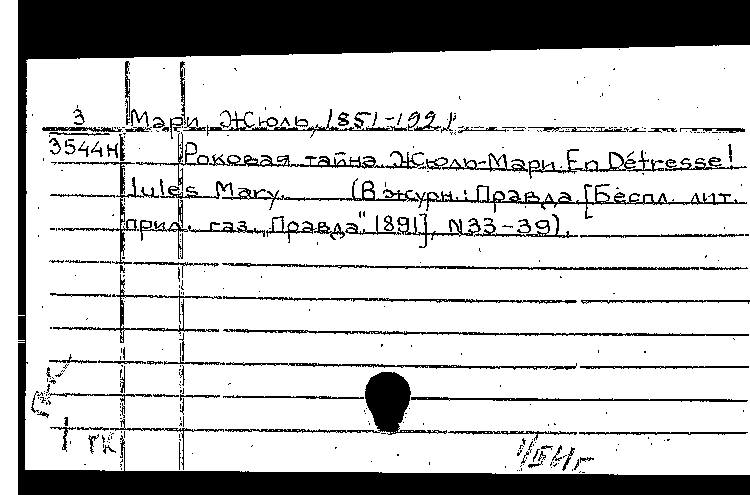 3 Мари, Жюль, 1851-1921
3544н Роковая тайна. Жюль-Мари. En Détresse!
Jules Mary. (В журн.: Правда. [Беспл. лит.
прил. газ. „Правда" 1891], N33-39).
1 гк